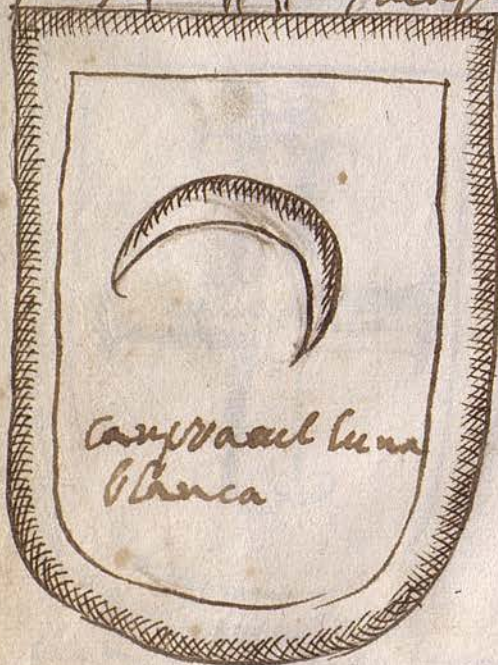 campo açul luna
blanca